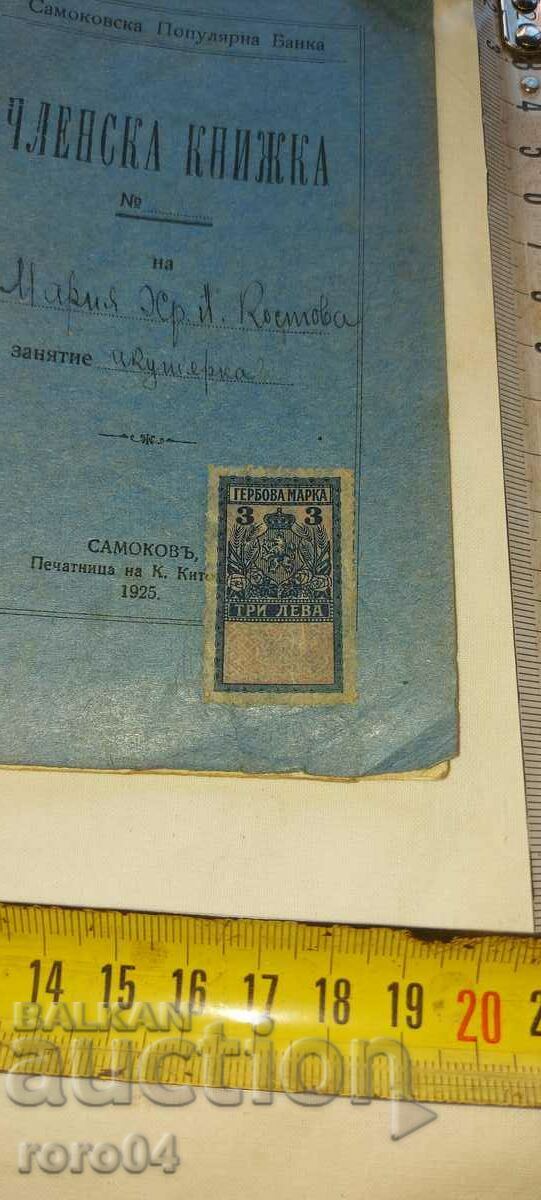 Самоковска Популярна Банка
ЧЛЕНСКА КНИЖКА
№
на
Мария Хр. П. Костова
занятие акушерка
САМОКОВЪ,
Печатница на К. Кито
1925.
ГЕРБОВА МАРКА
3 3
ТРИ ЛЕВА
14 15 16 17 18 19 20 2
BALKAN
auction
roro04